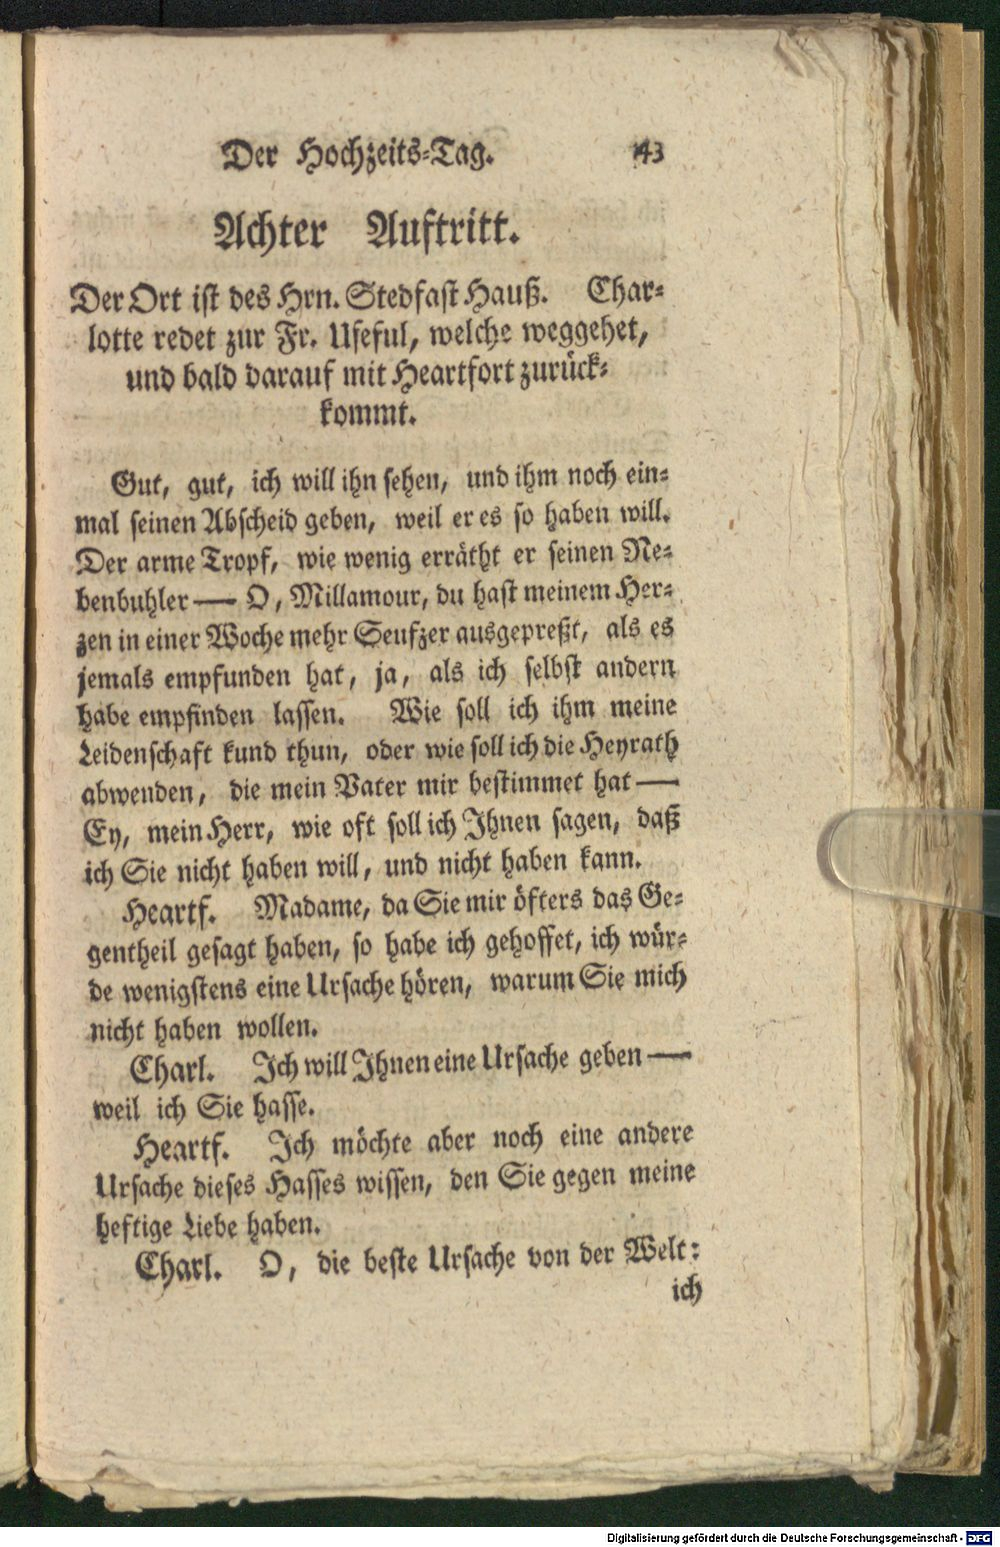 Der Hochzeits-Tag. 43
Achter Auftritt.
Der Ort ist des Hrn. Stedfast Hauß. Char-
lotte redet zur Fr. Useful, welche weggehet,
und bald darauf mit Heartfort zurück-
kommt.
Gut, gut, ich will ihn sehen, und ihm noch ein-
mal seinen Abscheid geben, weil er es so haben will.
Der arme Tropf, wie wenig errätht er seinen Ne-
benbuhler — O, Millamour, du hast meinem Her-
zen in einer Woche mehr Seufzer ausgepreßt, als es
jemals empfunden hat, ja, als ich selbst andern
habe empfinden lassen. Wie soll ich ihm meine
Leidenschaft kund thun, oder wie soll ich die Heyrath
abwenden, die mein Vater mir bestimmet hat —
Ey, mein Herr, wie oft soll ich Ihnen sagen, daß
ich Sie nicht haben will, und nicht haben kann.
Heartf. Madame, da Sie mir öfters das Ge-
gentheil gesagt haben, so habe ich gehoffet, ich wür-
de wenigstens eine Ursache hören, warum Sie mich
nicht haben wollen.
Charl. Ich will Ihnen eine Ursache geben —
weil ich Sie hasse.
Heartf. Ich möchte aber noch eine andere
Ursache dieses Hasses wissen, den Sie gegen meine
heftige Liebe haben.
Charl. O, die beste Ursache von der Welt:
ich
Digitalisierung gefördert durch die Deutsche Forschungsgemeinschaft - DFG